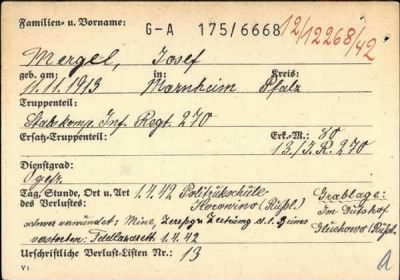 Familien- u. Vorname: G-A 175/6668 12/12268/42
Mergel, Josef
geb. am: in: Kreis:
11.11.1913 Marnheim Pfalz
Truppenteil:
Stabskomp. Inf. Regt. 270
Ersatz-Truppenteil: Erk.-M.: 80
13./J.R. 270
Dienstgrad:
Ogefr.
Tag, Stunde, Ort u. Art des Verlustes: 1.4.42 Politrukschule
(Rußl.) Grablage:
schwer verwundet: Mine, Im Gutshof
verstorben: Feldlazarett 1.4.42 Gluchowo (Rußl.)
Urschriftliche Verlust-Listen Nr.: 13
V1